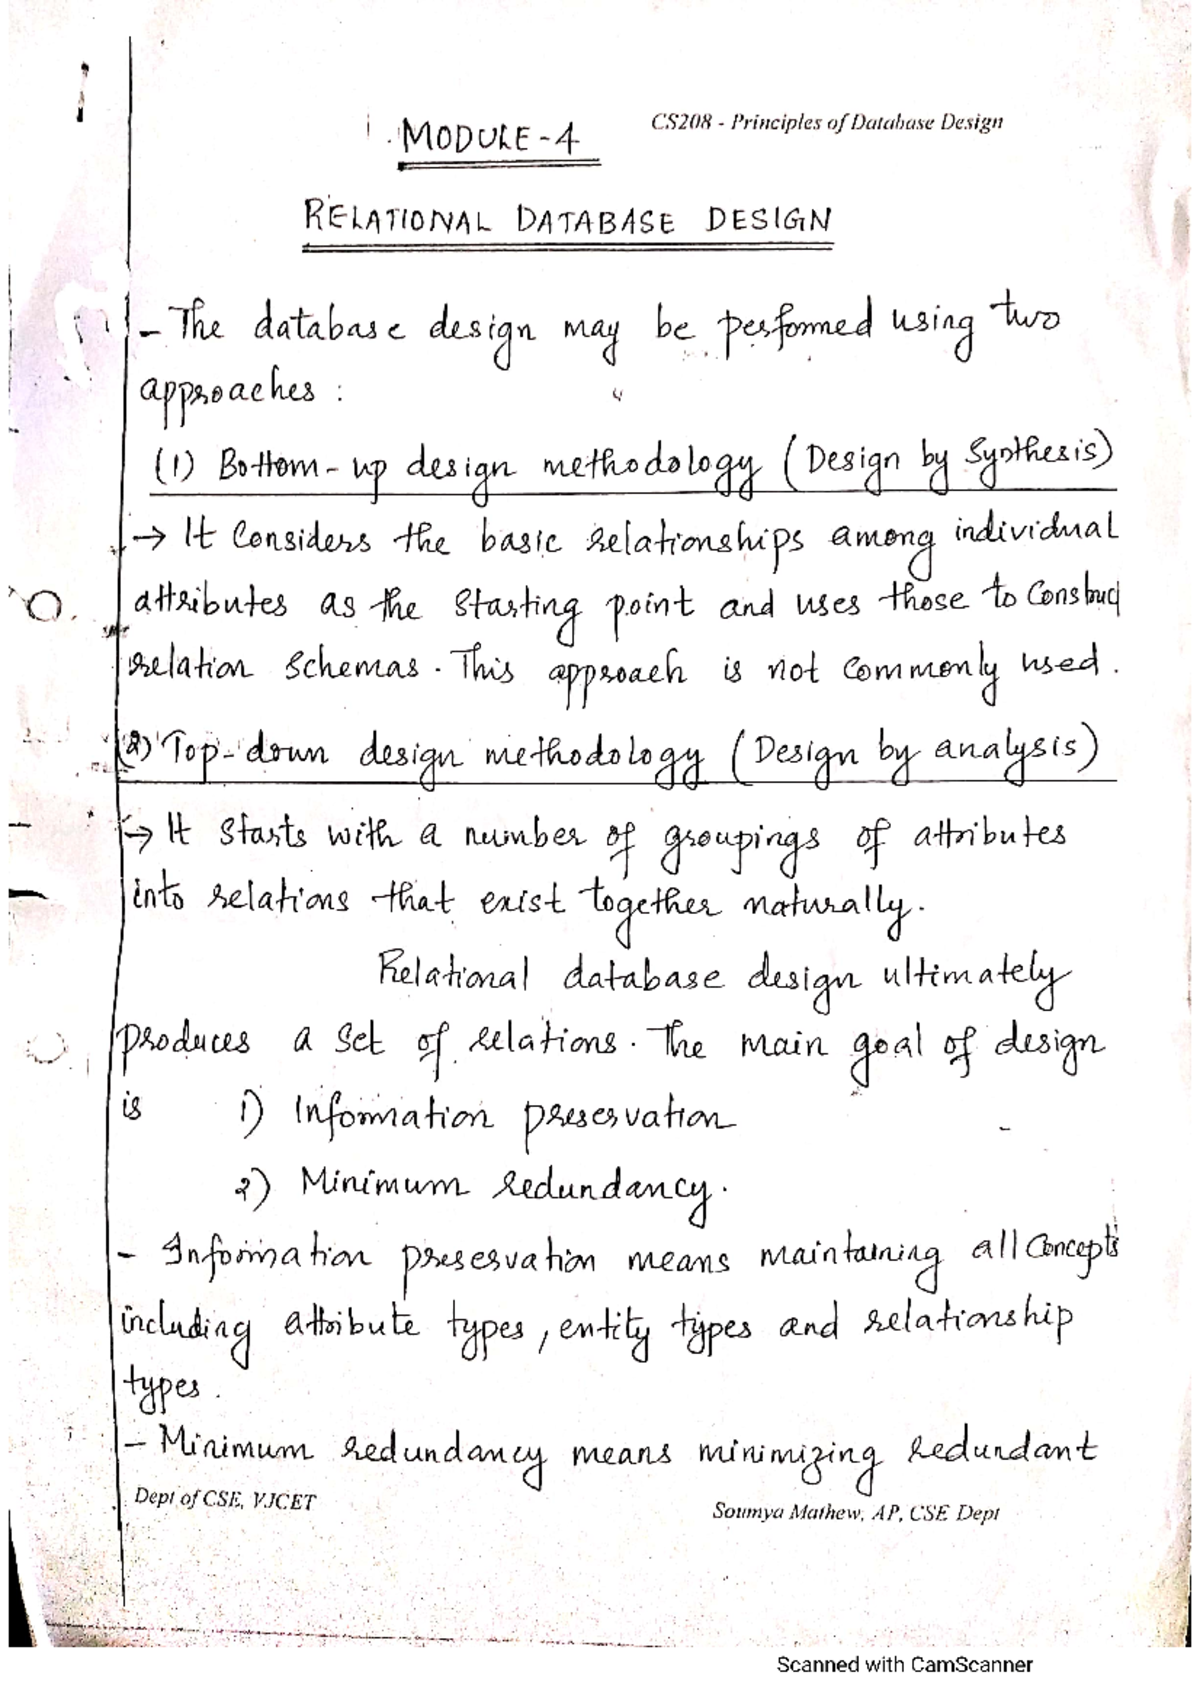 CS208 - Principles of Database Design
MODULE-4
RELATIONAL DATABASE DESIGN
- The database design may be performed using two
approaches :
(1) Bottom-up design methodology (Design by Synthesis)
→ It Considers the basic relationships among individual
attributes as the Starting point and uses those to Construct
relation Schemas. This approach is not Commonly used.
(2) Top-down design methodology (Design by analysis)
→ It Starts with a number of groupings of attributes
into relations that exist together naturally.
Relational database design ultimately
produces a Set of relations. The main goal of design
is 1) Information preservation
2) Minimum redundancy.
- Information preservation means maintaining all Concepts
including attribute types, entity types and relationship
types.
- Minimum redundancy means minimizing redundant
Dept of CSE, VJCET
Soumya Mathew, AP, CSE Dept
Scanned with CamScanner